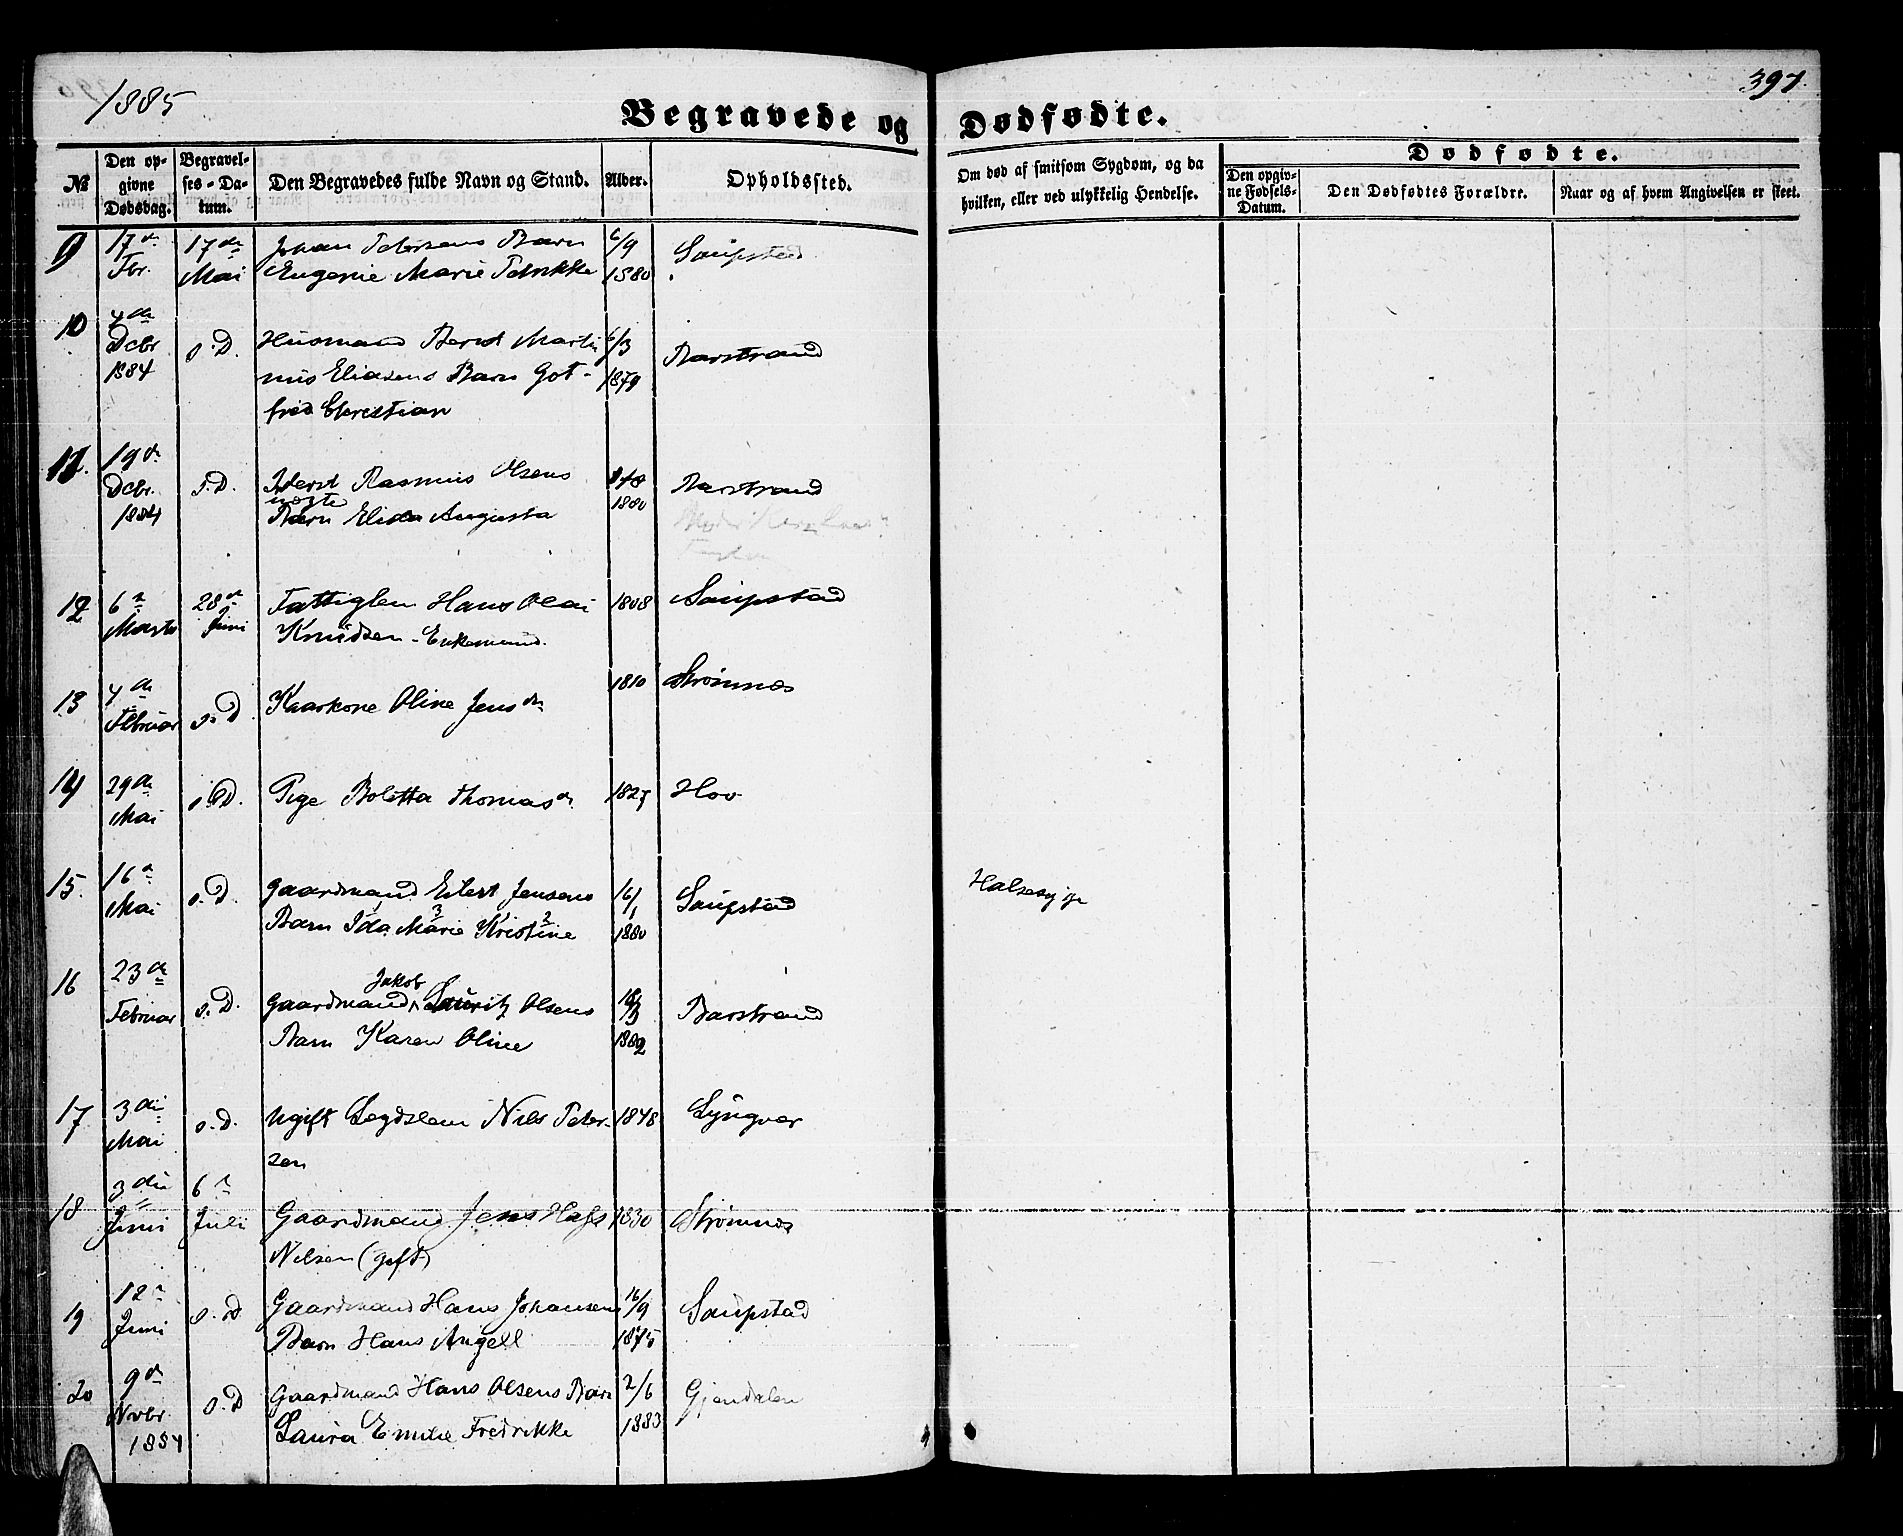 1885
397.
Begravede og Dødfødte.
№
Den opgivne Dødsdag.
Begravelses-Datum.
Den Begravedes fulde Navn og Stand.
Alder.
Opholdssted.
Om død af smitsom Sygdom, og da hvilken, eller ved ulykkelig Hendelse.
Dødfødte.
Den opgivne Fødsels-Datum.
Den Dødfødtes Forældre.
Naar og af hvem Angivelsen er skeet.
9 17de 17de Johan Petersens Barn 6/9 Saupstad
Fbr. Mai Eugenie Marie Petrikke 1880
10 4de
Dcbr o.D. Husmand Bernt Marti 6/3 Barstrand
1884 nus Eliasens Barn Got- 1879
fred Christian
11. 19de
Dcbr. s.D. Rasmus Olsens Barstrand
1884 uægte 1880
Barn Elida Augusta
12 6te 28de Fattiglem Hans Olai 1808 Saupstad
Marts Juni Knudsen - Enkemand.
13 4de 1810 Strømnes
Februar s.D Kaarkone Oline Jensdr
14 29de o.D. Pige Boletta Thomasdr 1827 Hov
Mai
15. 16de o.D. Gaardmand Eilert Jensens 16/1 Saupstad Halsesyge
Mai Barn Ida Marie 3 Kristine 2 1880
16 23de Jakob
Februar s.D. Gaardmand Lauritz Olsens Barstrand
Barn Karen Oline 1882
17 3die o.D. Ugift Legdslem Nils Peter- 1848 Lyngvær
Mai sen
18 3die 6te
Juni Juli Gaardmand Jens Hass 1830 Strømnes
Nilsen (gift)
19 12te o.D Gaardmand Hans Johansens 16/9 Saupstad
Juni Barn Hans Angell 1875
20 9de o.D Gaardmand Hans Olsens Barn 2/6 Gjendalen
Nvbr. Laura Emilie Fredrikke 1883
1884